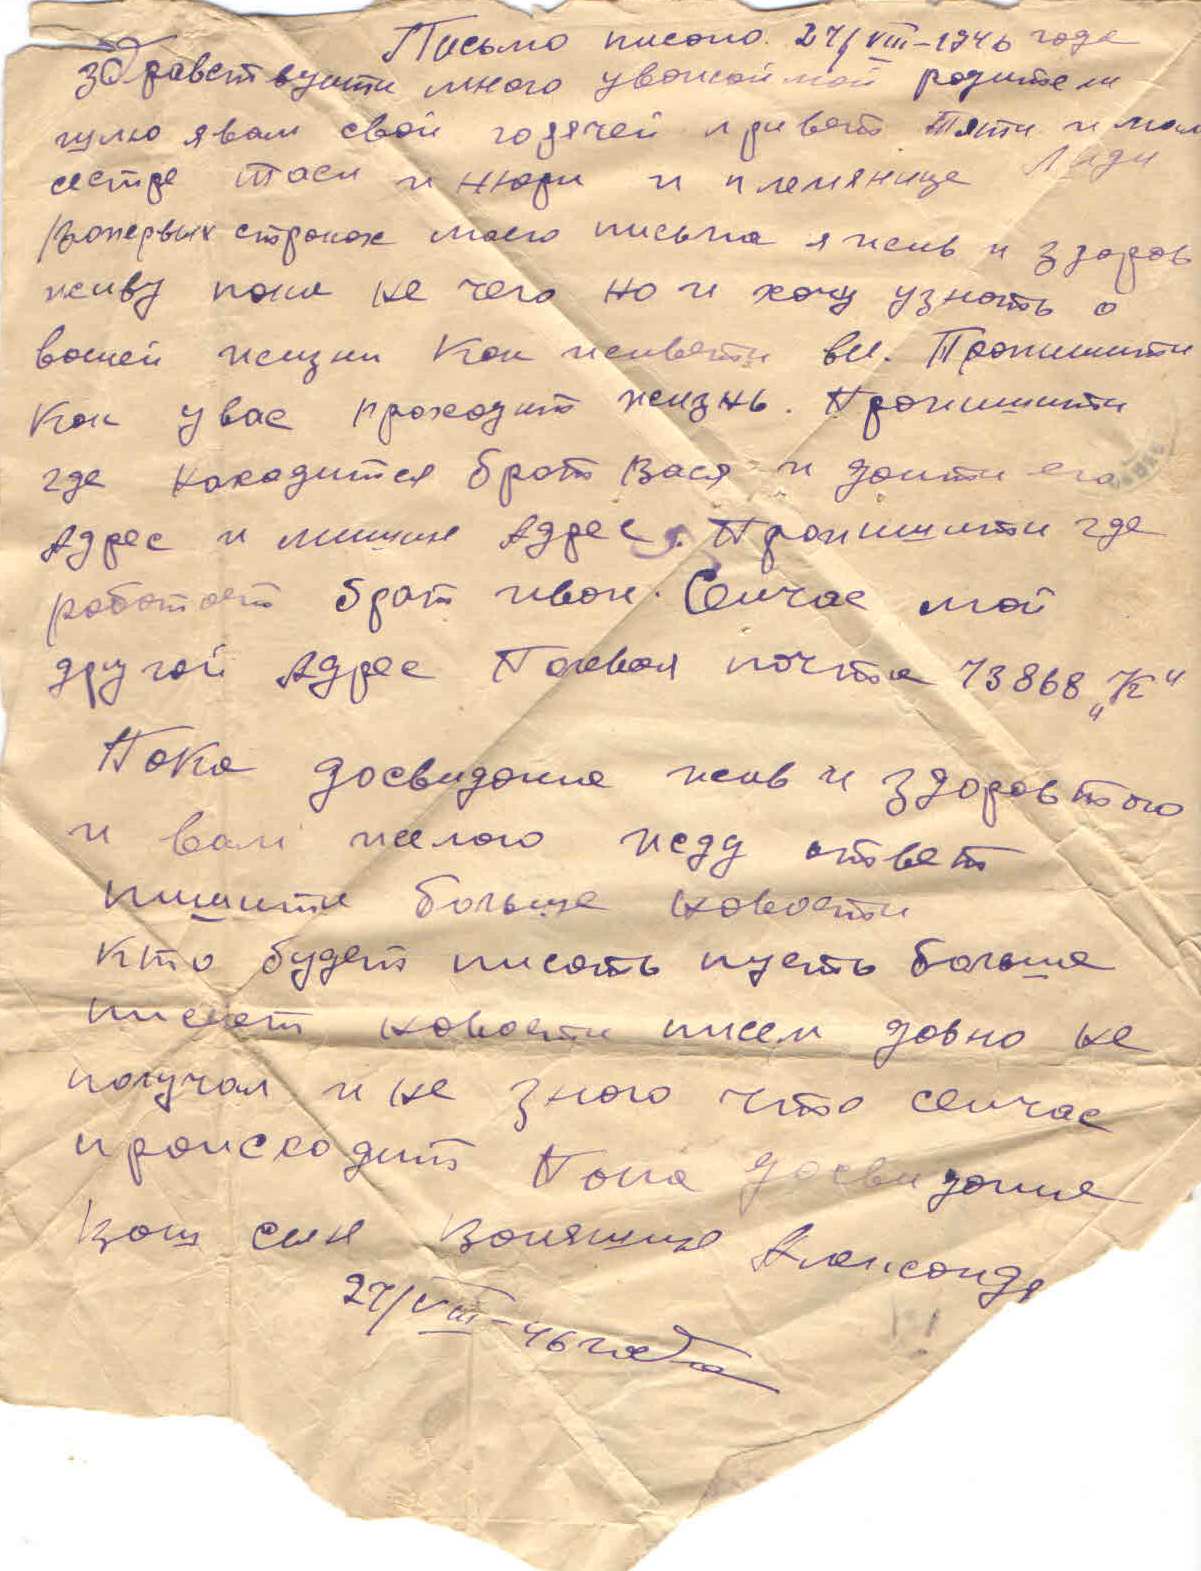 Письмо писано 24/VIII-1946 года
здравствуити много уважоймой родители
шлю я вам свой горячей привет тяти и мам
сестре таси и нюри и племянице Лиди
вопервых строках моего письма я жив и здоров
живу пока не чего но и хочу узнать о
вашей жизни как живети вы. Пропишити
как у вас проходит жизнь. Пропишити
где находится брат Вася и даити его
Адрес и мишин Адрес. Пропишити где
работает брат иван. Сеичас мой
другой Адрес Полевая почта 73868 „К"
Пока досвидания жив и здоров того
и вам желаю жду ответ
пишити больше новости
кто будет писать пусть больше
пишет новости писем давно не
получал и не знаю что сеичас
происходит Пока досвидания
Ваш сын Александр
24/VIII-46 года